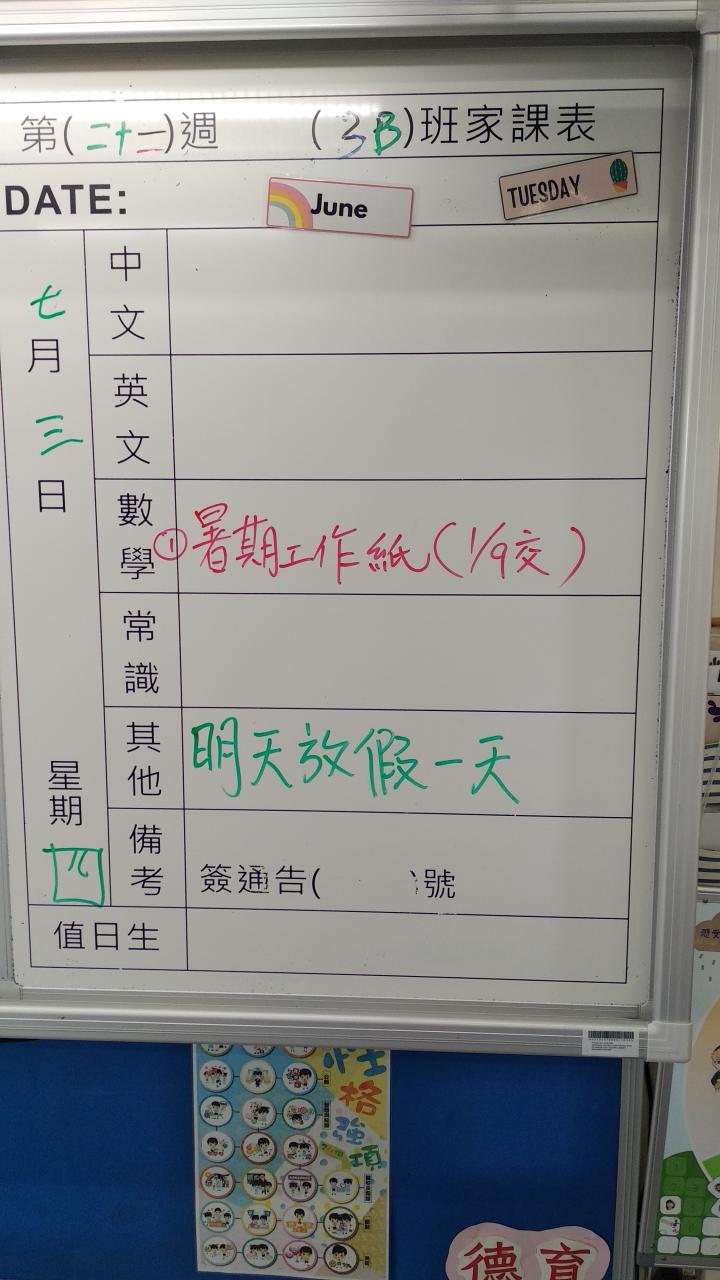 第(二十一)週 (3B)班家課表
DATE: June TUESDAY
七月三日
星期四
中文
英文
數學 ①暑期工作紙(1/9交)
常識
其他 明天放假一天
備考 簽通告( )號
值日生
性格強項
德育